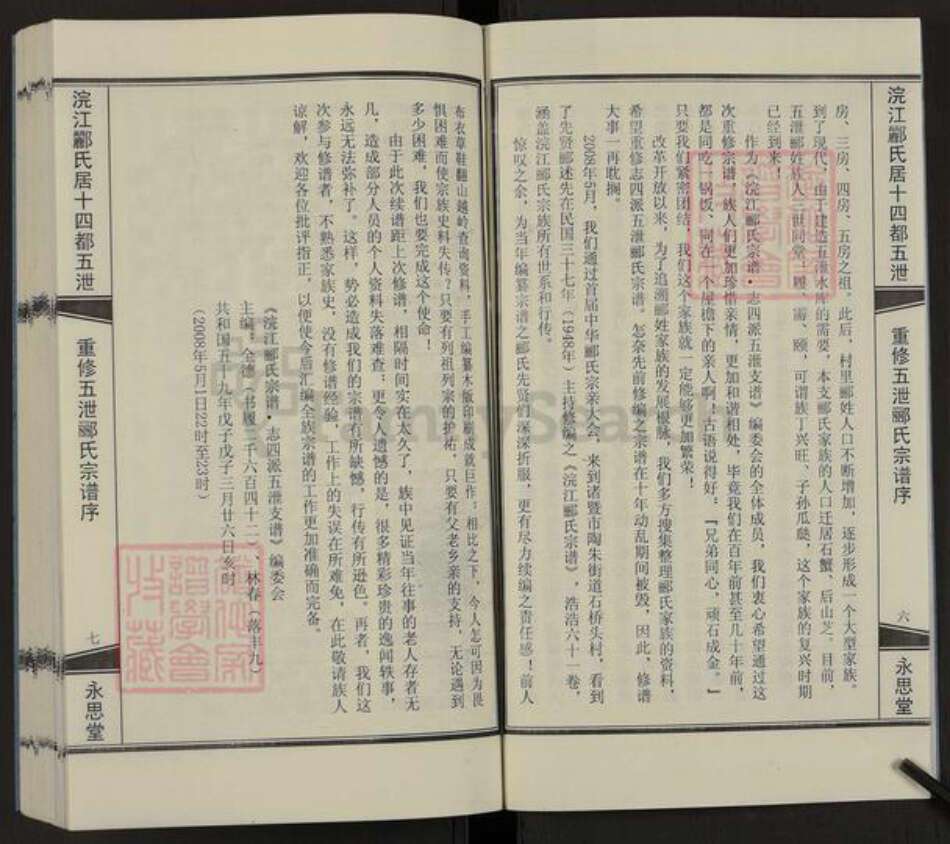 浣江酈氏居十四都五泄
重修五泄郦氏宗谱序
六
永思堂
房、三房、四房、五房之祖。此后，村里郦姓人口不断增加，逐步形成一个大型家族。
到了现代，由于建造五泄水库的需要，本支郦氏家族的人口迁居石蟹、后山芝。目前，
五泄郦姓族人三世同堂！履、需、颐，可谓族丁兴旺、子孙瓜瓞，这个家族的复兴时期
已经到来！
作为《浣江郦氏宗谱·志四派五泄支谱》编委会的全体成员，我们衷心希望通过这
次重修宗谱，族人们更加珍惜亲情，更加和谐相处，毕竟我们在百年前甚至几十年前，
都是同吃一锅饭、同在一个屋檐下的亲人啊！古语说得好：『兄弟同心，顽石成金。』
只要我们紧密团结，我们这个家族就一定能够更加繁荣！
改革开放以来，为了追溯郦姓家族的发展根脉，我们多方搜集整理郦氏家族的资料，
希望重修志四派五泄郦氏宗谱。怎奈先前修编之宗谱在十年动乱期间被毁，因此，修谱
大事一再耽搁。
2008年5月，我们通过首届中华郦氏宗亲大会，来到诸暨市陶朱街道石桥头村，看到
了先贤郦述先在民国三十七年（1948年）主持修编之《浣江郦氏宗谱》，浩浩六十一卷，
涵盖浣江郦氏宗族所有世系和行传。
惊叹之余，为当年编纂宗谱之郦氏先贤们深深折服，更有尽力续编之责任感！前人
布衣草鞋翻山越岭查询资料，手工编纂木版印刷成就巨作；相比之下，今人怎可因为畏
惧困难而使宗族史料失传？只要有列祖列宗的护祐，只要有父老乡亲的支持，无论遇到
多少困难，我们也要完成这个使命！
由于此次续谱距上次修谱，相隔时间实在太久了，族中见证当年往事的老人存者无
几，造成部分人员的个人资料失落难查；更令人遗憾的是，很多精彩珍贵的逸闻轶事，
永远无法弥补了。这样，势必造成我们的宗谱有所缺憾，行传有所逊色。再者，我们这
次参与修谱者，不熟悉家族史，没有修谱经验，工作上的失误在所难免，在此敬请族人
谅解，欢迎各位批评指正，以便使今后汇编全族宗谱的工作更加准确而完备。
《浣江郦氏宗谱·志四派五泄支谱》编委会
主编：全德、书履（三千六百四十二）、林春（蕗丰九）
共和国五十九年戊子戊子三月廿六日亥时
（2008年5月1日22时至23时）
浣江酈氏居十四都五泄
重修五泄郦氏宗谱序
七
永思堂
FamilySearch